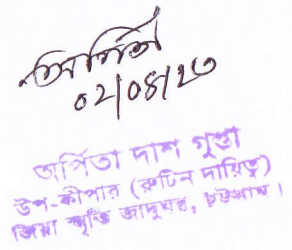 অর্পিতা
০২/০৪/২৩
অর্পিতা দাশ গুপ্তা
উপ-কীপার (রুটিন দায়িত্ব)
জিয়া স্মৃতি জাদুঘর, চট্টগ্রাম।